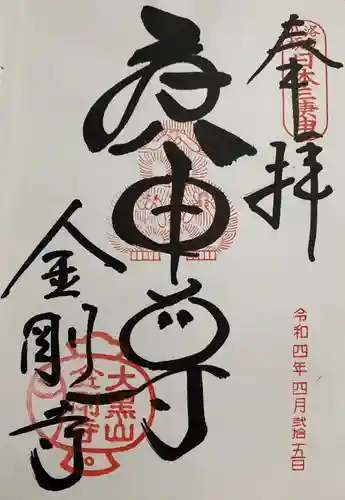 奉拝
洛 日本三庚申
庚申尊
金剛寺
大黒山
金剛寺
令和四年四月弐拾五日